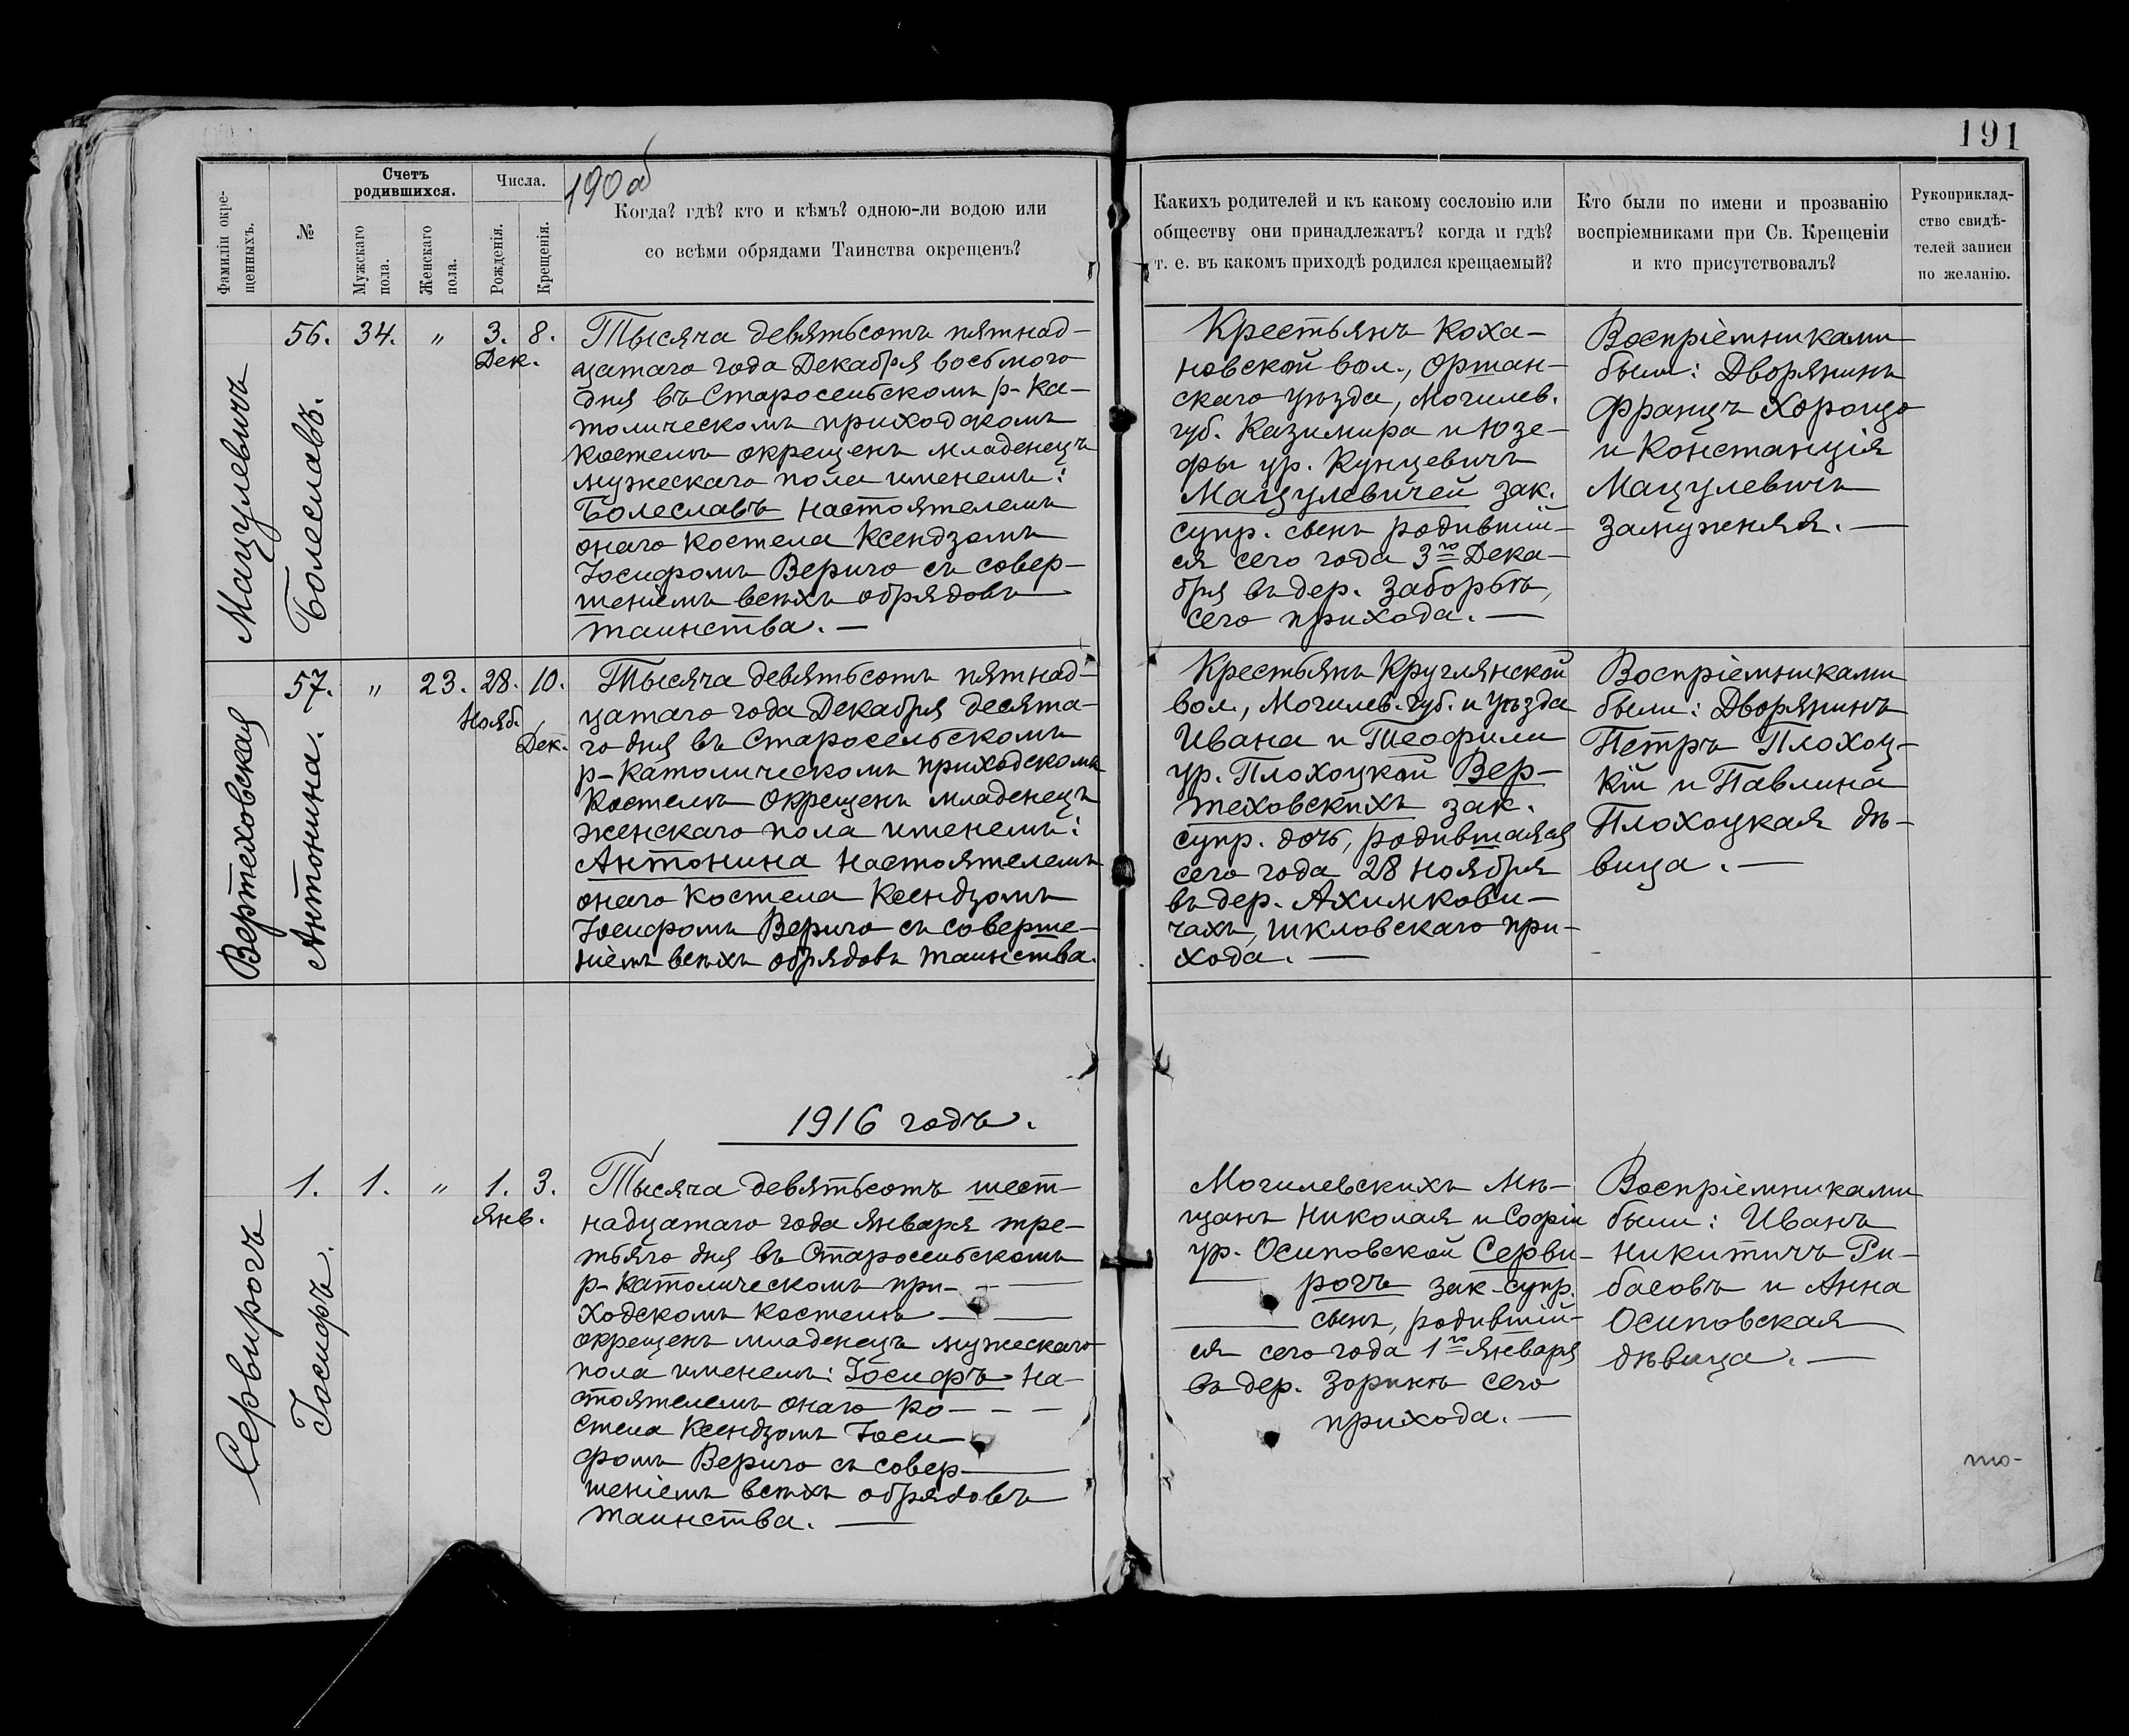 191
190 об
Фамиліи окре-
щенныхъ.
№
Счетъ
родившихся.
Мужскаго
пола.
Женскаго
пола.
Числа.
Рожденія.
Крещенія.
Когда? гдѣ? кто и кѣмъ? одною-ли водою или
со всѣми обрядами Таинства окрещенъ?
Какихъ родителей и къ какому сословію или
обществу они принадлежатъ? когда и гдѣ?
т. е. въ какомъ приходѣ родился крещаемый?
Кто были по имени и прозванію
воспріемниками при Св. Крещеніи
и кто присутствовалъ?
Рукоприклад-
ство свидѣ-
телей записи
по желанію.
Мацулевичъ
Болеславъ.
56. 34. „ 3. 8.
Дек.
Тысяча девятьсотъ пятнад-
цатаго года Декабря восьмого
дня въ Старосельскомъ р-ка-
толическомъ приходскомъ
костелѣ окрещенъ младенецъ
мужескаго пола именемъ:
Болеславъ настоятелемъ
онаго костела Ксендзомъ
Іосифомъ Верыго съ совер-
шеніемъ всѣхъ обрядовъ
таинства. —
Крестьянъ Коха-
новской вол., Оршан-
скаго уѣзда, Могилев.
губ. Казимира и Юзе-
фы ур. Кунцевичъ
Мацулевичей зак.
супр. сынъ родившій-
ся сего года 3го Дека-
бря въ дер. Заборьѣ,
сего прихода. —
Воспріемниками
были: Дворянинъ
Францъ Хорошо
и Констанція
Мацулевичъ
замужняя. —
Вертеховская
Антонина.
57. „ 23. 28. 10.
Нояб.
Дек.
Тысяча девятьсотъ пятнад-
цатаго года Декабря десята-
го дня въ Старосельскомъ
р-католическомъ приходскомъ
костелѣ окрещенъ младенецъ
женскаго пола именемъ:
Антонина настоятелемъ
онаго костела Ксендзомъ
Іосифомъ Верыго съ соверше-
ніемъ всѣхъ обрядовъ таинства.
Крестьянъ Круглянской
вол., Могилев. губ. и уѣзда
Ивана и Теофили
ур. Плохоцкой Вер-
теховскихъ зак.
супр. дочь, родившаяся
сего года 28 Ноября
въ дер. Ахимкови-
чахъ, Шкловскаго при-
хода. —
Воспріемниками
были: Дворянинъ
Петръ Плохоц-
кій и Павлина
Плохоцкая дѣ-
вица. —
1916 годъ.
Сервирогъ
Іосифъ.
1. 1. „ 1. 3.
Янв.
Тысяча девятьсотъ шест-
надцатаго года Января тре-
тьяго дня въ Старосельскомъ
р-католическомъ при-
ходскомъ костелѣ —
окрещенъ младенецъ мужескаго
пола именемъ: Іосифъ на-
стоятелемъ онаго ко-
стела Ксендзомъ Іоси-
фомъ Верыго съ совер-
шеніемъ всѣхъ обрядовъ
таинства. —
Могилевскихъ мѣ-
щанъ Николая и Софіи
ур. Осиповской Серви-
рогъ зак. супр.
сынъ, родившій-
ся сего года 1го Января
въ дер. Зорикѣ сего
прихода. —
Воспріемниками
были: Иванъ
Никитичъ Ри-
басовъ и Анна
Осиповская
дѣвица. —
то-